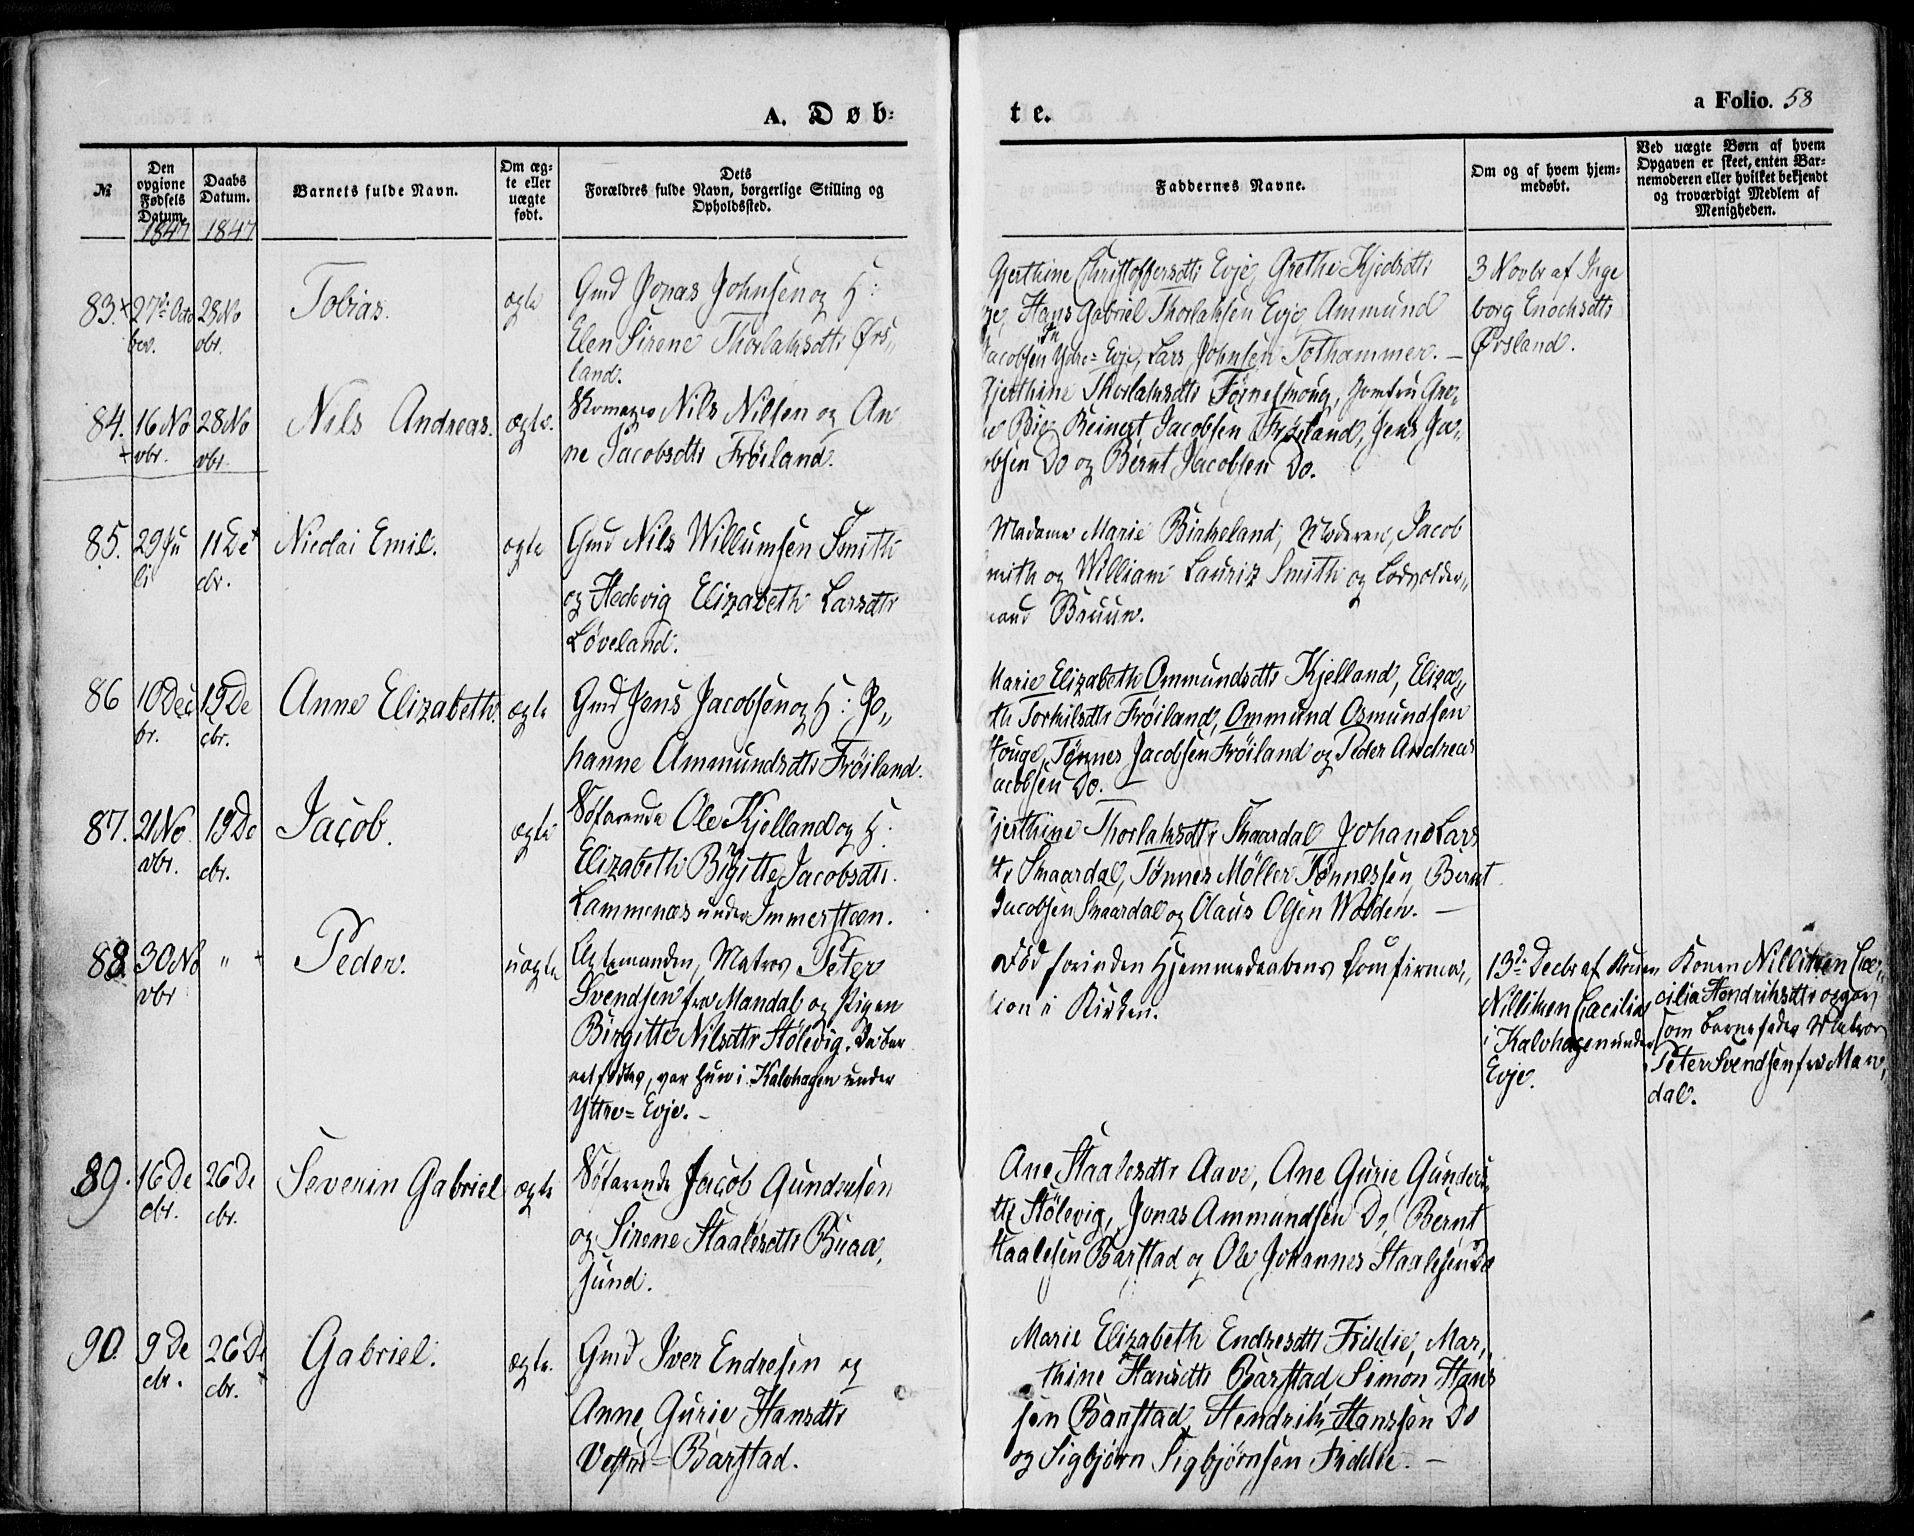 A. Døb=
te.
a Folio. 58
№
Den
opgivne
Fødsels
Datum.
1847
Daabs
Datum.
1847
Barnets fulde Navn.
Om æg-
te eller
uægte
født.
Dets
Forældres fulde Navn, borgerlige Stilling og
Opholdssted.
Faddernes Navne.
Om og af hvem hjem-
medøbt.
Ved uægte Børn af hvem
Opgaven er skeet, enten Bar-
nemoderen eller hvilket bekjendt
og troværdigt Medlem af
Menigheden.
83. 27de Octo
ber.
28 No
vbr.
Tobias.
ægte
Gmd Jonas Johnsen og H:
Elen Sirene Thorlaksdtr Ørs„
land.
Gjerthine Christoffersdtr Evje, Grethe Kjedsdtr
Hans Gabriel Thorlaksen Evje Ammund
Jacobsen Ydre= Evje, Lars Johnsen Tothammer. —
3 Novbr af Inge
borg Enochsdtr
Ørsland.
84. 16 No
vbr.
28 No
vbr.
Nils Andreas.
ægte.
Skomager Nils Nilsen og An
ne Jacobsdtr Frøiland.
Gjerthine Thorlaksdtr Jomfru Gre„
Bie Reinert Jacobsen Frøiland, Jens Ja„
obsen Do og Bernt Jacobsen Do.
85. 29 Ju
li
11 De
cbr.
Nicolai Emil.
ægte
Gmd Nils Willumsen Smith
og Hedevig Elizabeth Larsdtr
Løveland.
Madame Marie Birkeland, Moderen, Jacob
mith og William Lauriz Smith og
Bruun.
86 10 Dec
br.
19 De
cbr.
Anne Elizabeth.
ægte
Gmd Jens Jacobsen og H: Jo„
hanne Ammundsdtr Frøiland.
Marie Elizabeth Ommundsdtr Kjelland, Eliza„
th Torkilsdtr Frøiland, Ommund Osmundsen
Houge, Tønnes Jacobsen Frøiland og Peder Andreas
acobsen Do. —
87. 21 No
vbr.
19 De
cbr.
Jacob.
ægte
Søfarende Ole Kjelland og H:
Elizabeth Birgitte Jacobsdtr
Lammenæs under Immersteen.
Gjerthine Thorlaksdtr Skaardal Johane Lars
tr Skaardal, Tønnes Møller Tønnessen, Bernt
Jacobsen Skaardal og Claus Olsen Wolden. —
88. 30 No
vbr
„
Peder.
uægte
Ægtemanden, Matros Peter
Svendsen fra Mandal og Pigen
Birgitte Nilsdtr Stølevig. Da bar
net fødtes, var hun i Kalvhagen under
Yttre= Evje. —
Død forinden Hjemmedaabens Confirma„
tion i Kirken.
13de Decbr af Konen
Nilliken Cæcilia
i Kalvhagen under
Evje.
Konen Nilliken Cæ„
cilia Hendriksdtr opgav
som barnefader Matros
Peter Svendsen fra Man„
dal.
89. 16 De
cbr.
26 De
cbr.
Severin Gabriel
ægte
Søfarende Jacob Gundersen
og Sirene Staalesdtr Buaa„
sund.
Ane Staalesdtr Aave, Ane Gurie Gunders„
dtr Stølevig, Jonas Ammundsen Do, Bernt
Staalesen Barstad og Ole Johannes Staalesen Do
90. 9 De
cbr.
26 De
cbr.
Gabriel.
ægte.
Gmd Iver Endresen og
Anne Gurie Hansdtr
Vestre= Barstad.
Marie Elizabeth Endresdtr Fidde, Mar„
thine Hansdtr Barstad Simon Hans
sen Barstad, Hendrik Hanssen Do
og Sigbjørn Sigbjørnsen Fidde. —